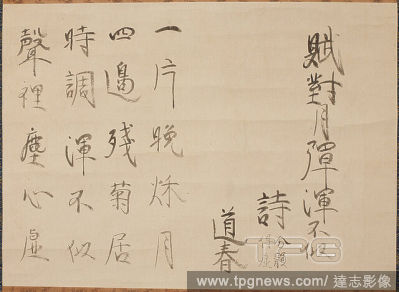 賦對月彈渾不似
詩 分韻得虛
道春
一片晚秋月
四邊殘菊居
時調渾不似
聲裡塵心虛
TPG
www.tpgnews.com / 達志影像